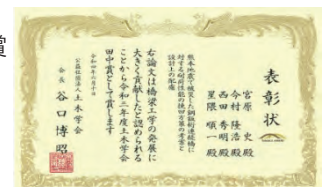 賞
表彰状
宮原 史殿
今村 隆浩殿
西田 秀明殿
星隈 順一殿
熊本地震で被災した鋼鈑桁連続橋に
対する耐荷性能の検討方策の考察と
設計上の配慮
右論文は橋梁工学の発展に
大きく貢献したと認められる
ことから令和二年度土木学会
田中賞として賞します
令和四年六月十日
公益社団法人 土木学会
会長 谷口博昭